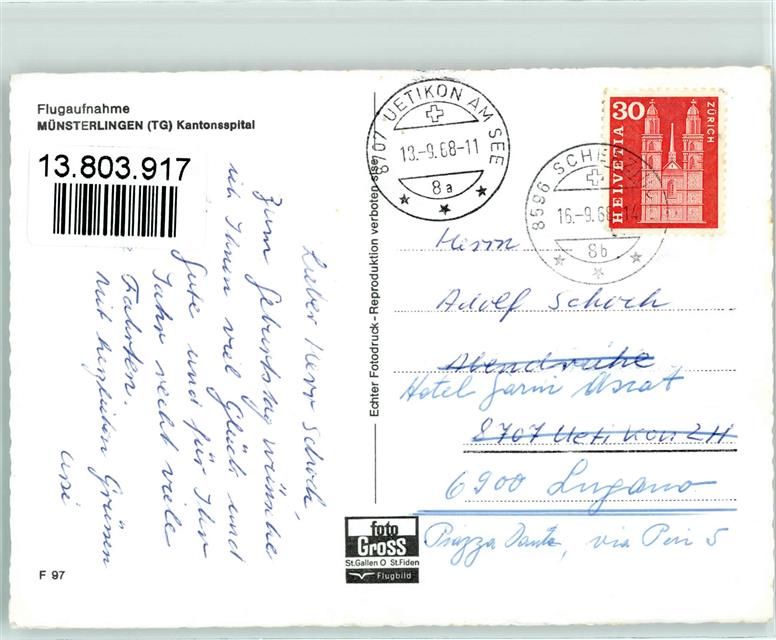 Flugaufnahme
MÜNSTERLINGEN (TG) Kantonsspital
13.803.917
Lieber Herr Schoch,
Zum Geburtstag wünsche
ich Ihnen viel Glück und
Gute und für Ihr
Jahr recht viele
Fahrten.
Mit herzlichen Grüssen
F 97
Echter Fotodruck - Reproduktion verboten
foto
Gross
St.Gallen O St.Fiden
Flugbild
8707 UETIKON AM SEE
13.-9.68-11
8a
8596 SCH
16.-9.68-14
8b
30
HELVETIA
ZÜRICH
Herrn
Adolf Schoch
Abendruhe
Hotel Garni
8707 Uetikon ZH
6900 Lugano
Piazza Dante, via Peri 5